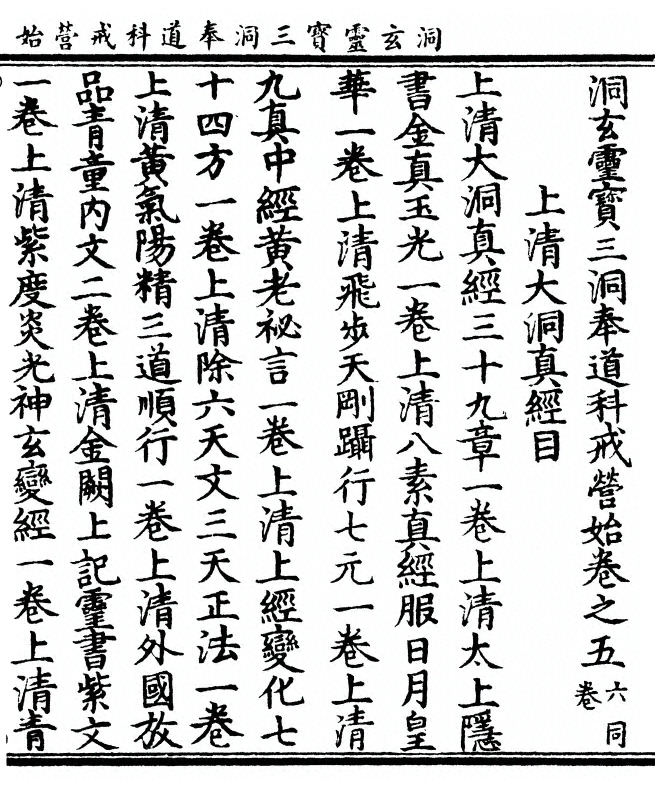 洞玄靈寶三洞奉道科戒營始
洞玄靈寶三洞奉道科戒營始卷之五 六同卷
上清大洞真經目
上清大洞真經三十九章一卷上清太上隱
書金真玉光一卷上清八素真經服日月皇
華一卷上清飛步天剛躡行七元一卷上清
九真中經黃老祕言一卷上清上經變化七
十四方一卷上清除六天文三天正法一卷
上清黃氣陽精三道順行一卷上清外國放
品青童內文二卷上清金闕上記靈書紫文
一卷上清紫度炎光神玄變經一卷上清青